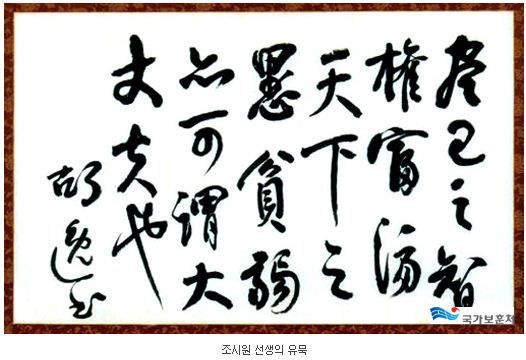 盡己之智
權富濟
天下之
愚貧弱
亦可謂大
丈夫也
胡逸書
국가보훈처
조시원 선생의 유묵